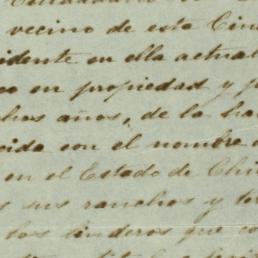 Ciudadano
vecino de esta Ciu
idente en ella actual
co en propiedad y p
chos años, de la ha
cida con el nombre
en el Estado de Chi
s sus ranchos y to
los linderos que co